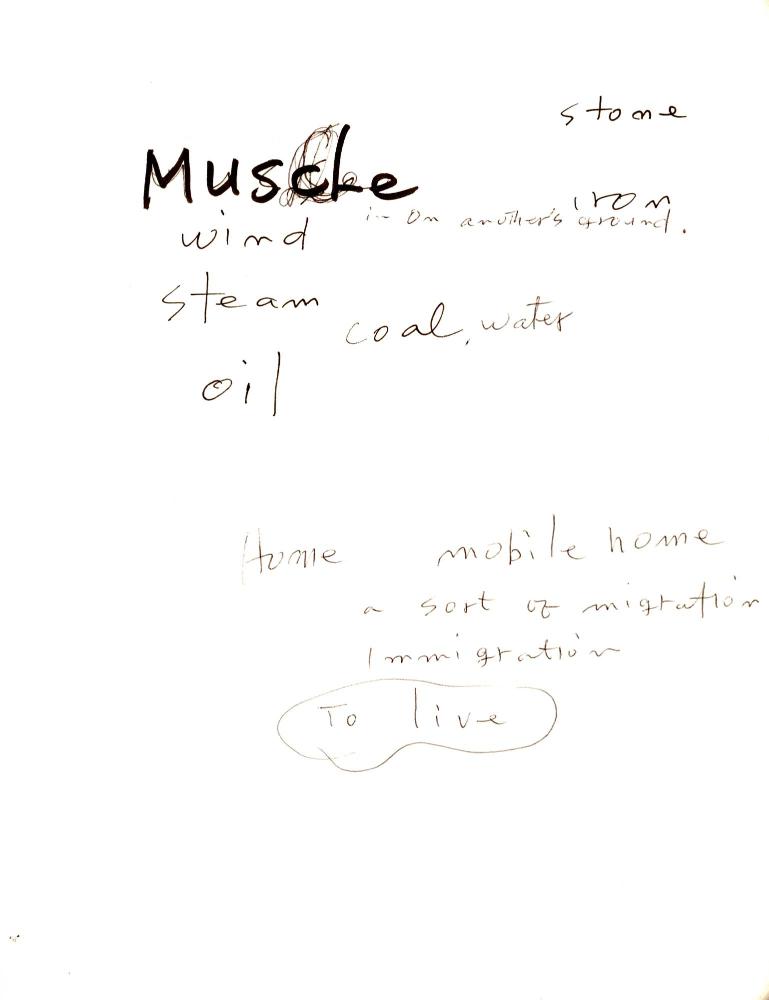 stone
Muscle
iron
in on another's ground.
wind
steam
coal, water
oil
Home mobile home
a sort of migration
Immigration
To live